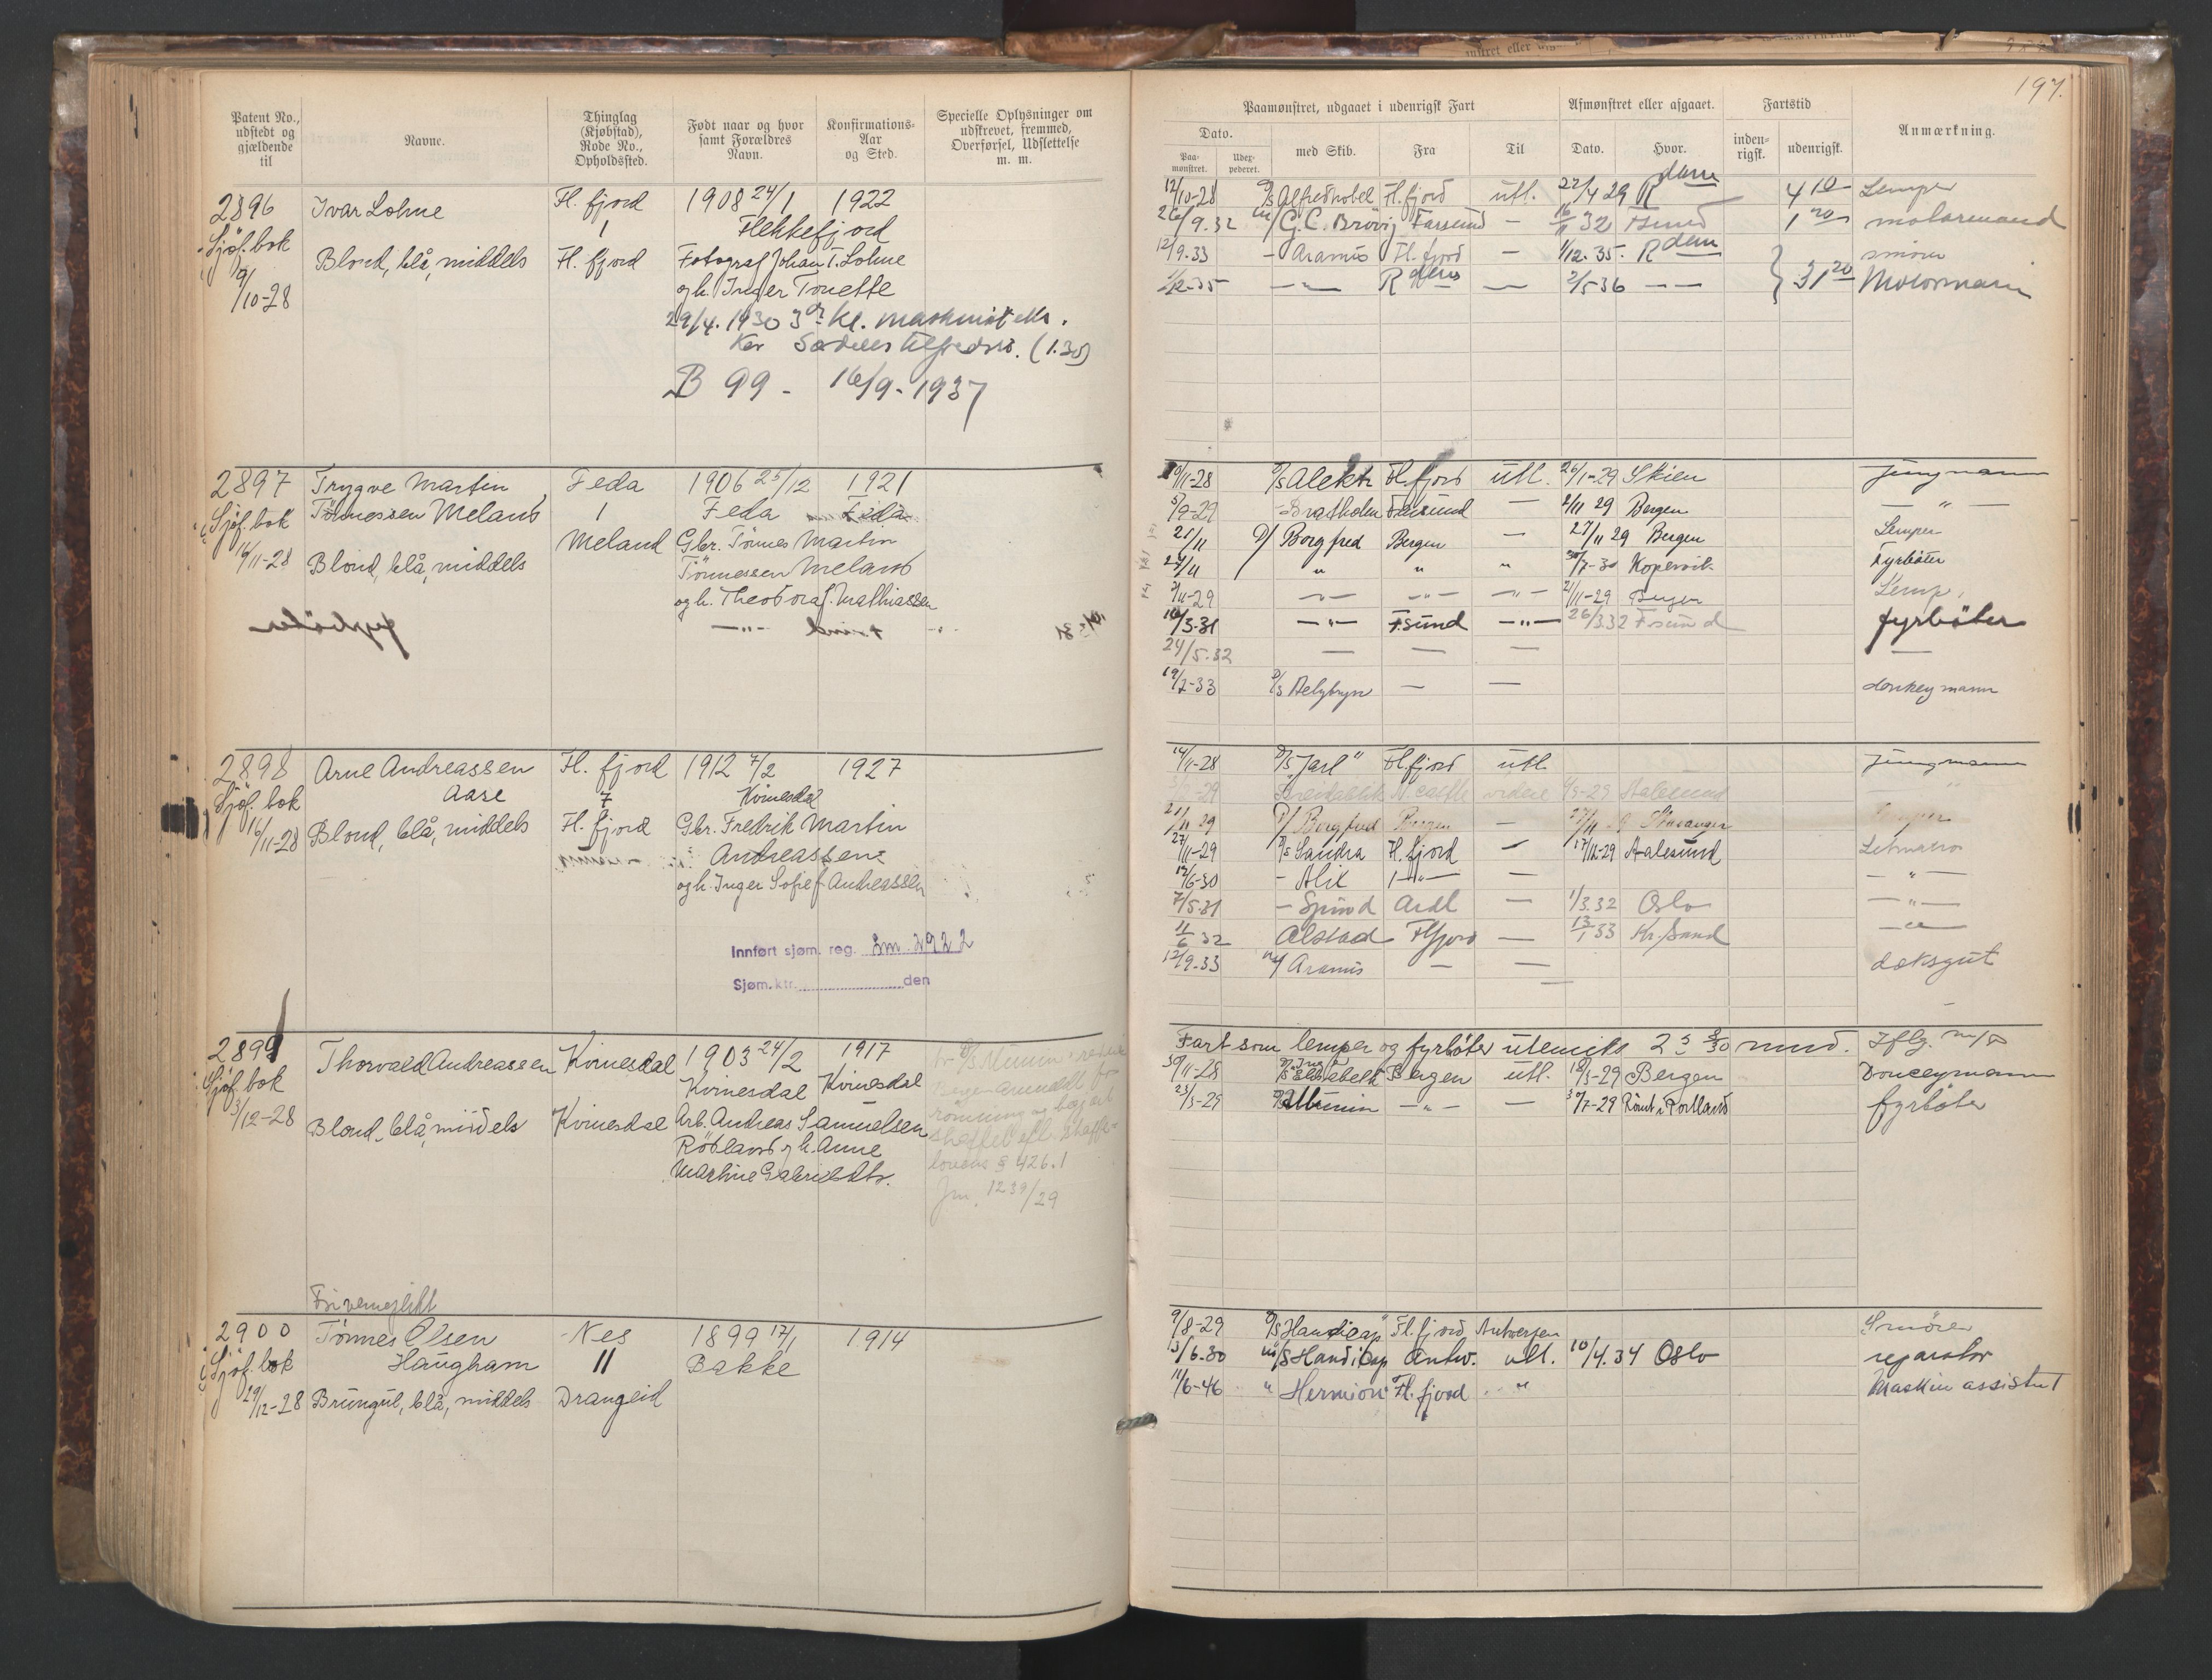 197.
Patent No., udstedt og gjældende til
Navne.
Thinglag (Kjøbstad), Rode No., Opholdssted.
Født naar og hvor samt Forældres Navn.
Konfirmations-Aar og Sted.
Specielle Oplysninger om udskrevet, fremmed, Overførsel, Udslettelse m. m.
2896 Ivar Lohne Fl. fjord 1908 24/1 1922
Sjøf. bok 1 Flekkefjord
Blond, blå, middels Fl. fjord Fotograf Johan T. Lohne
9/10-28 og h. Inger Tonette
29/4. 1930 3dr kl. maskinist
(1.30)
B 99 - 16/9-1937
2897 Trygve Martin Feda 1906 25/12 1921
Sjøf. bok Tønnessen Meland 1 Feda Feda
16/11-28 Blond, blå, middels Meland Gbr. Tønnes Martin
Tönnessen Meland
og h. Theodora f. Mathiassen
2898 Arne Andreassen Fl. fjord 1912 7/2 1927
Sjøf. bok Aase 7 Kvinesdal
16/11-28 Blond, blå, middels Fl. fjord Gbr. Fredrik Martin
Andreassen
og h. Inger Sofie f. Andreassen
Innført sjøm. reg. Sm. 2922
Sjøm.ktr. den
2899 Thorvald Andreassen Kvinesdal 1903 24/2 1917
Sjøf. bok Kvinesdal Kvinesdal
3/12-28 Blond, blå, middels Kvinesdal Arb. Andreas Samuelsen
Rødland og h. Anne
Martine Gabrielsdtr.
§ 426.1
Jm. 1239/29
2900 Tönnes Olsen Nes 1899 17/1 1914
Sjøf. bok Haugham 11 Bakke
29/12-28 Brungul, blå, middels Drangeid
Paamønstret, udgaaet i udenrigsk Fart
Afmønstret eller afgaaet.
Fartstid
Anmærkning.
Dato.
Paa-mønstret.
Udex-pederet.
med Skib.
Fra
Til
Dato.
Hvor.
inden-rigsk.
udenrigsk.
12/10-28 D/S Alfred Nobel Fl. fjord utl. 22/4 29 Rdam 4 10 Lemper
26/9.32 M/ G.C. Brøvig Farsund — 16/11 32 Fsund 1 20 motormand
12/9.33 - Aramis Fl. fjord — 1/12.35. Rdam smører
1/12-35 —„— Rdam — 2/5 36 — — 31 20 Motormann
19/11-28 D/S Alekto Fl. fjord utl. 26/1-29 Skien jungmann
5/9-29 - Bratholm Farsund — 2/11 29 Bergen — „ —
21/11 D/ Borgfred Bergen — 27/11 29 Bergen Lemper
27/11 „ „ „ 30/7-30 Kopervik Fyrbøter
—„— —„— —„— 21/11-29 Bergen Lemp.
10/3.31 —„— F.sund —„— 26/3 32 F.sund fyrbøter
24/5.32 — — — —
19/7-33 D/S — — donkeymann
14/11-28 D/S „Jarl“ Fl. fjord utl. jungmann
Aalesund „
21/11 29 D/ Borgfred Bergen — 27/11 29 Stavanger Lemper
27/11-29 D/S Sandra Fl. fjord — 17/12-29 Aalesund Letmatros
12/6-30 - Alix —„— — — „ —
7/5.31 - Spind — 1/3.32 Oslo — „ —
11/6 32 Alstad Flfjord — 13/1 33 Kr.Sand — „ —
12/9.33 M/ Aramis — — deksgut
Fart som lemper og fyrbøter utenriks
30/11-28 Elisabeth Bergen utl. 18/3-29 Bergen Donceymann
23/3-29 D/S Munin —„— — 30/7-29 Römt i Portland fyrbøter
9/8-29 D/S „Handicap“ Fl. fjord Antwerpen Smører
13/6.30 M/S Handicap Antw. utl. 10/4.34 Oslo reparatør
11/6-46 „ Hermion Fl. fjord „ Maskinassistent